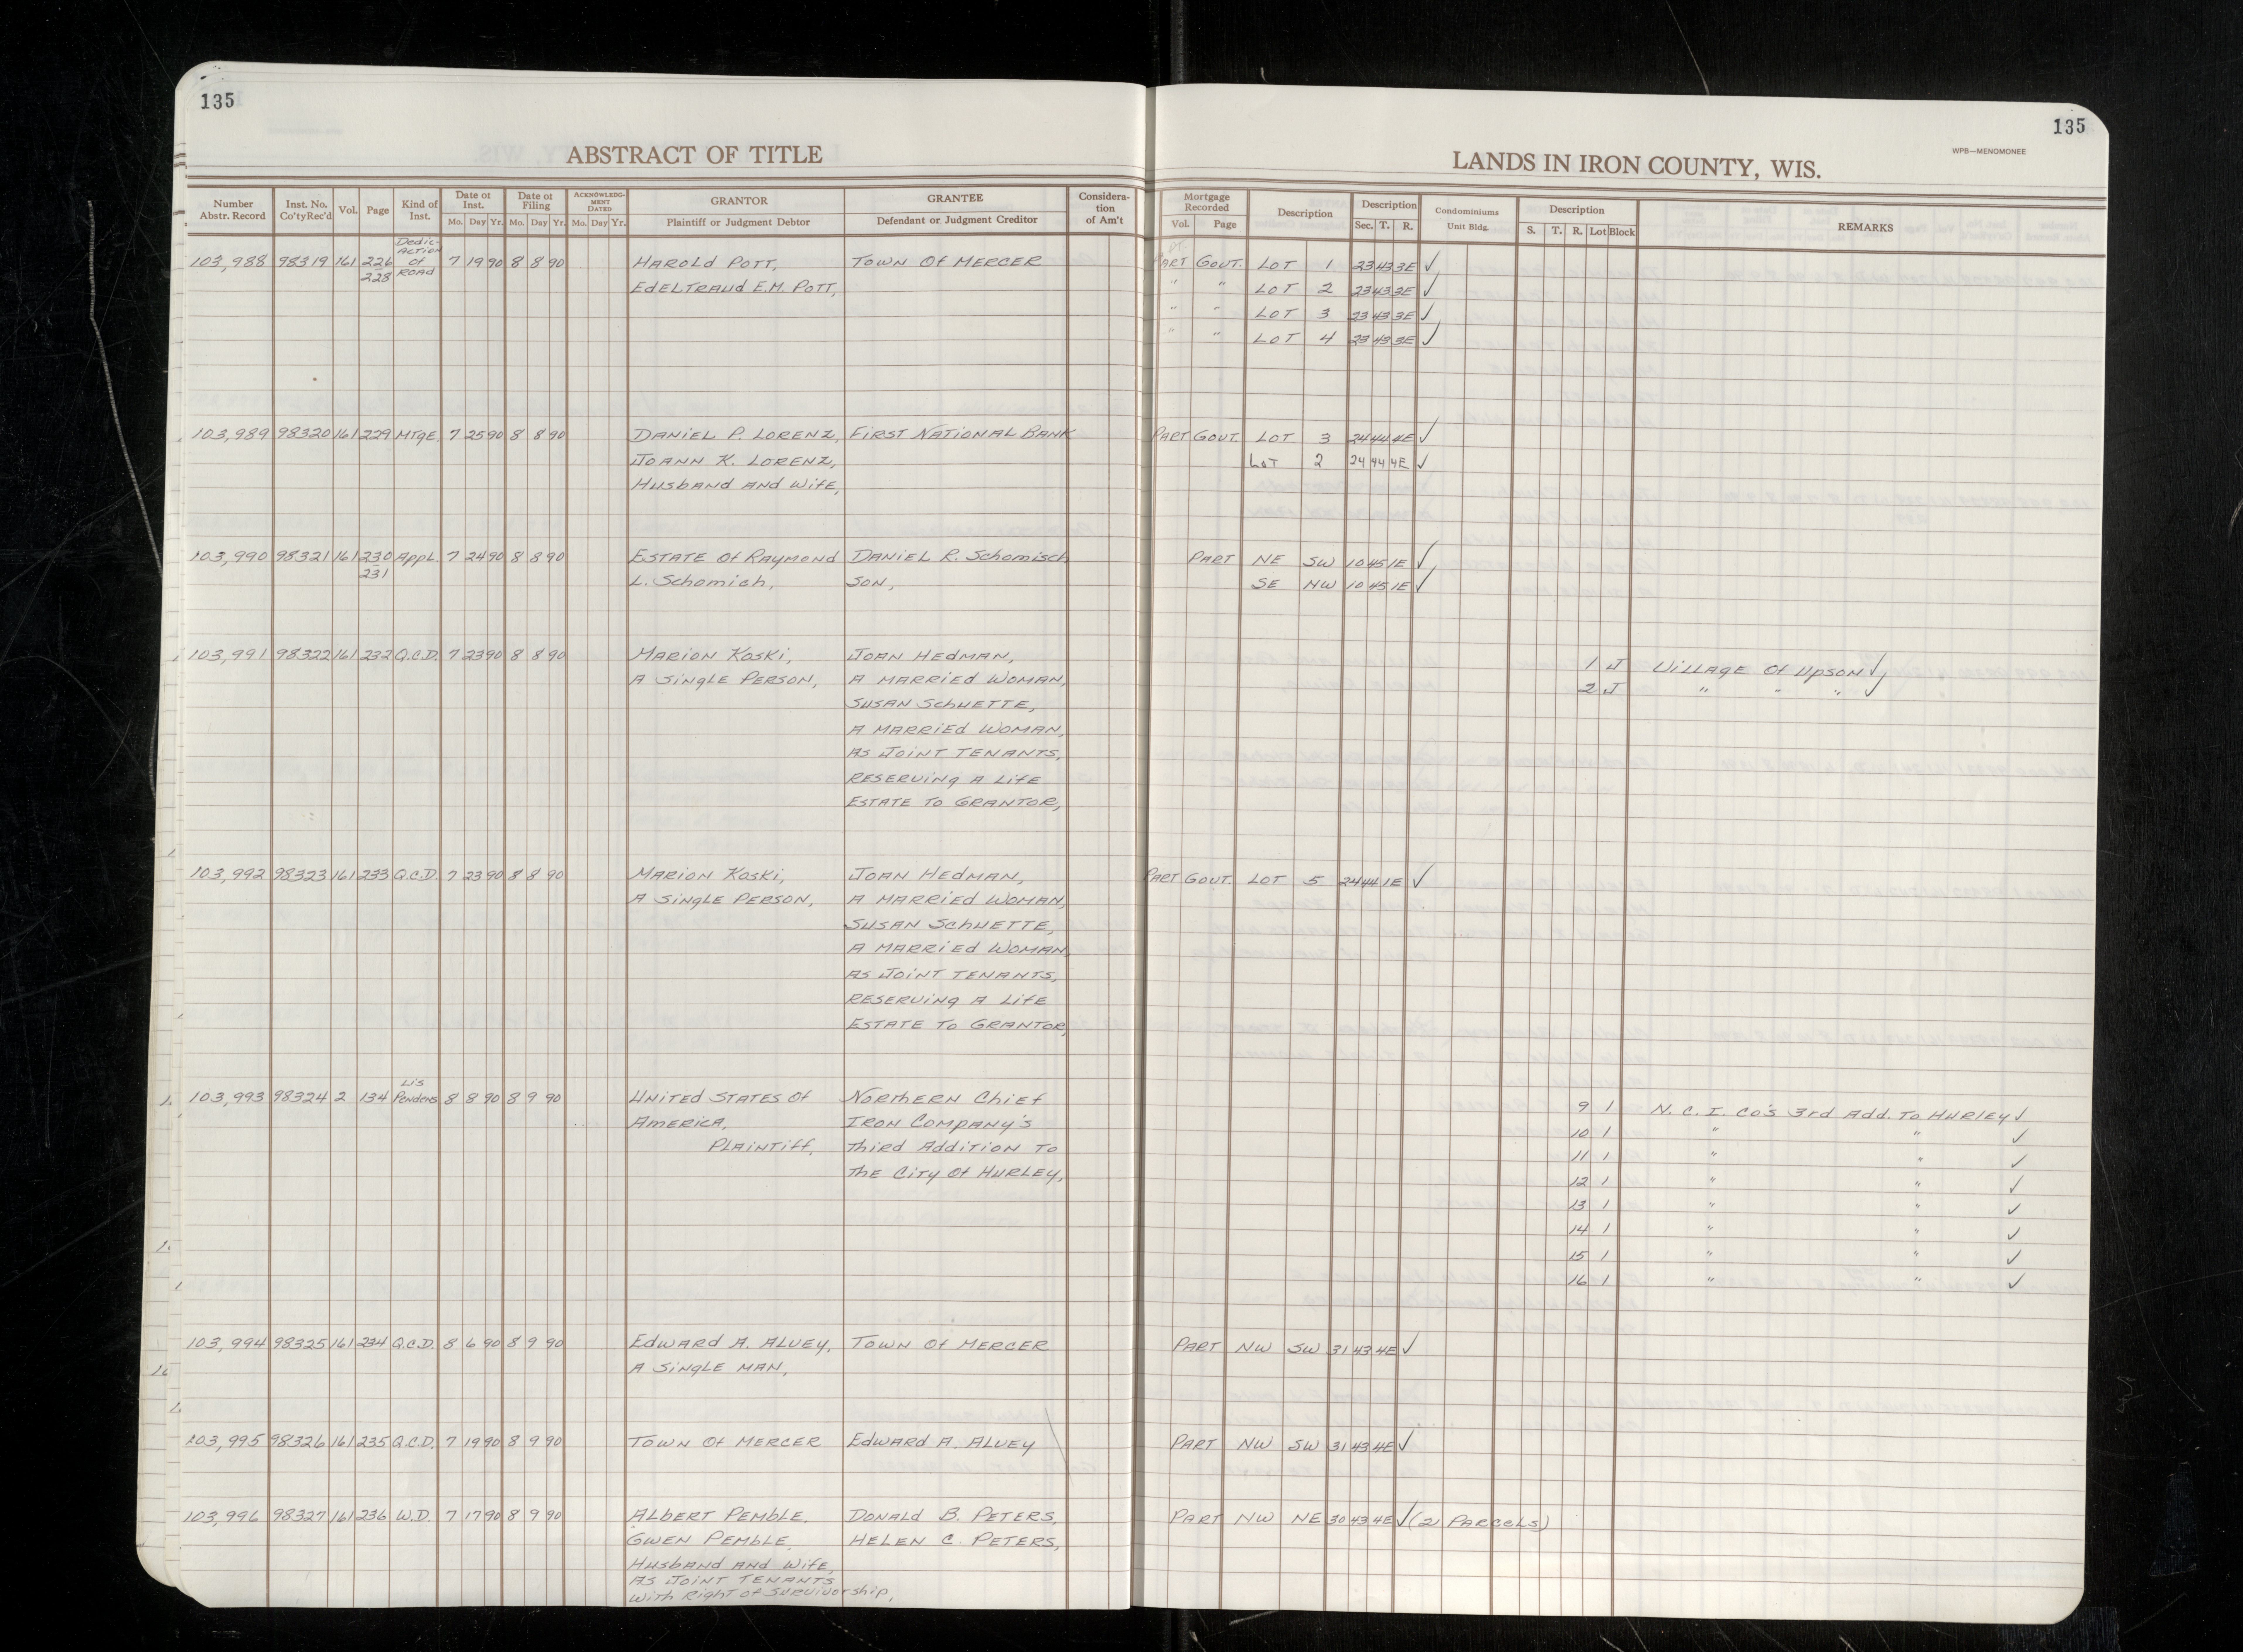 135
135
ABSTRACT OF TITLE
LANDS IN IRON COUNTY, WIS.
WPB—MENOMONEE
Number Abstr. Record
Inst. No. Co'tyRec'd
Vol.
Page
Kind of Inst.
Date of Inst.
Mo. Day Yr.
Date of Filing
Mo. Day Yr.
ACKNOWLEDGMENT DATED
Mo. Day Yr.
GRANTOR
Plaintiff or Judgment Debtor
GRANTEE
Defendant or Judgment Creditor
Consideration of Am't
Mortgage Recorded
Vol. Page
Description
Description
Sec. T. R.
Condominiums
Unit Bldg.
Description
S. T. R. Lot Block
REMARKS
Dedic-
ACTION
103,988 98319 161 226 of 7 19 90 8 8 90 HAROLD POTT, TOWN OF MERCER PART GOVT. LOT 1 23 43 3E ✓
228 ROAD EDELTRAUD E.M. POTT, " " LOT 2 23 43 3E ✓
" " LOT 3 23 43 3E ✓
" " LOT 4 23 43 3E ✓
103,989 98320 161 229 MTGE. 7 25 90 8 8 90 DANIEL P. LORENZ, FIRST NATIONAL BANK PART GOVT. LOT 3 24 44 4E ✓
JOANN K. LORENZ, LOT 2 24 44 4E ✓
HUSBAND AND WIFE,
103,990 98321 161 230 APPL. 7 24 90 8 8 90 ESTATE OF RAYMOND DANIEL R. SCHOMISCH PART NE SW 10 45 1E ✓
231 L. SCHOMICH, SON, SE NW 10 45 1E ✓
103,991 98322 161 232 Q.C.D. 7 23 90 8 8 90 MARION KOSKI, JOAN HEDMAN, 1 J VILLAGE OF UPSON ✓
A SINGLE PERSON, A MARRIED WOMAN, 2 J " " " ✓
SUSAN SCHUETTE,
A MARRIED WOMAN,
AS JOINT TENANTS,
RESERVING A LIFE
ESTATE TO GRANTOR,
103,992 98323 161 233 Q.C.D. 7 23 90 8 8 90 MARION KOSKI, JOAN HEDMAN, PART GOVT. LOT 5 24 44 1E ✓
A SINGLE PERSON, A MARRIED WOMAN,
SUSAN SCHUETTE,
A MARRIED WOMAN,
AS JOINT TENANTS,
RESERVING A LIFE
ESTATE TO GRANTOR,
LIS
103,993 98324 2 134 PENDENS 8 8 90 8 9 90 UNITED STATES OF NORTHERN CHIEF 9 1 N. C. I. CO'S 3rd ADD. TO HURLEY ✓
AMERICA, IRON COMPANY'S 10 1 " " ✓
PLAINTIFF, THIRD ADDITION TO 11 1 " " ✓
THE CITY OF HURLEY, 12 1 " " ✓
13 1 " " ✓
14 1 " " ✓
15 1 " " ✓
16 1 " " ✓
103,994 98325 161 234 Q.C.D. 8 6 90 8 9 90 EDWARD A. ALVEY, TOWN OF MERCER PART NW SW 31 43 4E ✓
A SINGLE MAN,
103,995 98326 161 235 Q.C.D. 7 19 90 8 9 90 TOWN OF MERCER EDWARD A. ALVEY PART NW SW 31 43 4E ✓
103,996 98327 161 236 W.D. 7 17 90 8 9 90 ALBERT PEMBLE, DONALD B. PETERS, PART NW NE 30 43 4E ✓ (2 PARCELS)
GWEN PEMBLE, HELEN C. PETERS,
HUSBAND AND WIFE,
AS JOINT TENANTS
WITH RIGHT OF SURVIVORSHIP,